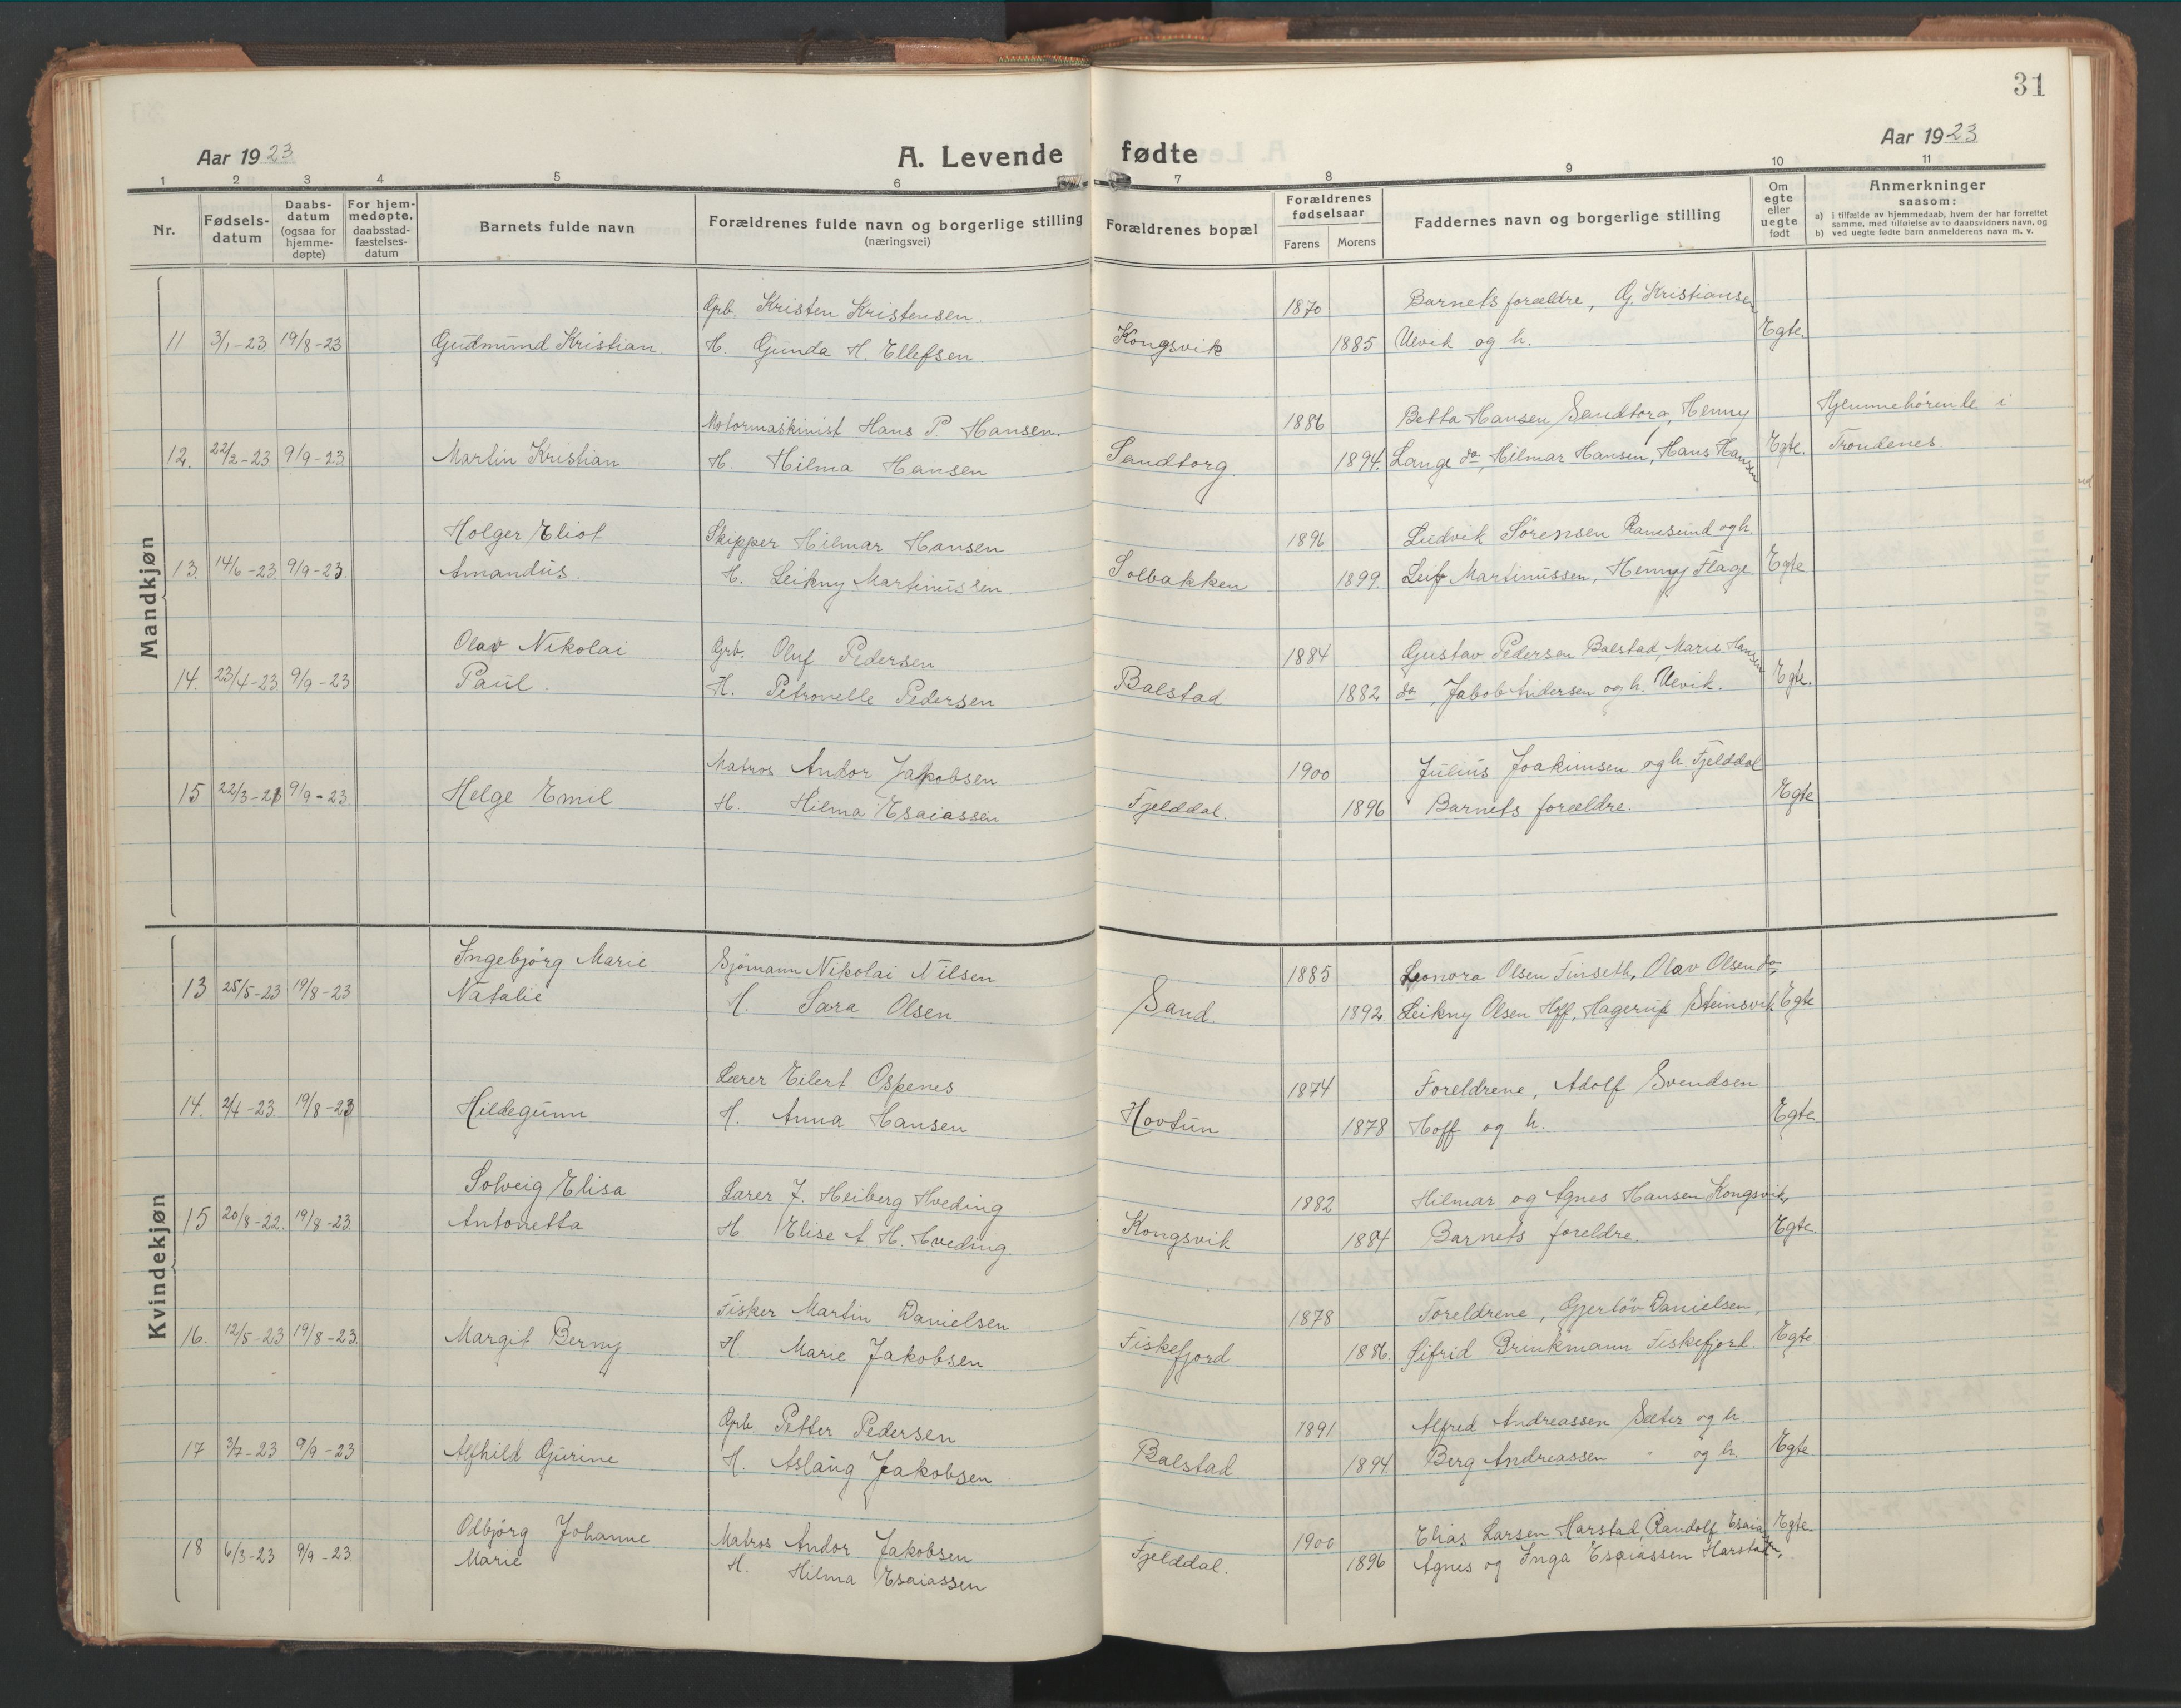 31
Aar 1923
A. Levende fødte
Aar 1923
1 2 3 4 5 6 7 8 9 10 11
Nr.
Fødsels-
datum
Daabs-
datum
(ogsaa for
hjemme-
døpte)
For hjem-
medøpte.
daabsstad-
fæstelses-
datum
Barnets fulde navn
Forældrenes fulde navn og borgerlige stilling
(næringsvei)
Forældrenes bopæl
Forældrenes
fødselsaar
Farens Morens
Faddernes navn og borgerlige stilling
Om
egte
eller
uegte
født
Anmerkninger
saasom:
a) i tilfælde av hjemmedaab, hvem der har forrettet
samme, med tilføielse av to daabsvidners navn, og
b) ved uegte fødte barn anmelderens navn m. v.
Mandkjøn
Grb. Kristen Kristensen. 1870 Barnets forældre, G. Kristiansen
11 3/1-23 19/8-23 Gudmund Kristian H. Gunda H. Ellefsen. Kongsvik 1885 Ulvik og h. Egte.
Motormaskinist Hans P. Hansen. 1886 Betta Hansen Sandtorg, Henny Hjemmehørende i
12. 22/2-23 9/9-23 Martin Kristian H. Hilma Hansen Sandtorg. 1894. Lange do, Hilmar Hansen, Hans Hansen Egte. Trondenes.
Holger Eliot Skipper Hilmar Hansen 1896 Ludvik Sørensen Ramsund og h.
13. 14/6-23 9/9-23. Amandus. H. Leikny Martinussen. Solbakken 1899. Leif Martinussen, Henny Flage Egte
Olav Nikolai Grb. Oluf Pedersen 1884 Gustav Pedersen Balstad, Marie Hansen
14. 23/4-23 9/9-23 Paul. H. Petronelle Pedersen Balstad 1882 do, Jakob Andersen og h. Ulvik. Egte.
Matros Andor Jakobsen 1900 Julius Joakimsen og h. Fjelddal
15 22/3-21 9/9-23 Helge Emil H. Hilma Esaiassen Fjelddal. 1896 Barnets forældre. Egte
Kvindekjøn
Ingebjørg Marie Sjømann Nikolai Nilsen 1885 Leonora Olsen Finseth, Olav Olsen do,
13 25/5-23 19/8-23 Natalie H. Sara Olsen Sand. 1892 Leikny Olsen Hoff, Hagerup Steinsvik Egte
Lærer Eilert Ospenes 1874 Foreldrene, Adolf Svendsen
14. 2/4-23 19/8-23 Hildegunn H. Anna Hansen Hovtun 1878 Hoff og h. Egte
Solveig Elisa Lærer J. Heiberg Hveding 1882 Hilmar og Agnes Hansen Kongsvik,
15 20/8-22. 19/8-23 Antonetta H. Elise A H. Hveding. Kongsvik 1884 Barnets foreldre. Egte
Fisker Martin Danielsen 1878 Foreldrene, Gjertöv Danielsen,
16. 12/5-23 19/8-23. Margit Berny H. Marie Jakobsen Fiskefjord 1886. Sifrid Brinkmann Fiskefjord. Egte
Grb Petter Pedersen 1891 Alfred Andreassen Sæter og h.
17 3/7-23 9/9-23 Alfhild Gurine H. Aslaug Jakobsen Balstad 1894 Berg Andreassen " og h. Egte
Odbjørg Johanne Matros Andor Jakobsen 1900 Elias Larsen Harstad, Randolf Esaia Egte
18 6/3-23 9/9-23 Marie H. Hilma Esaiassen Fjelddal. 1896 Agnes og Inga Esaiassen Harstad,